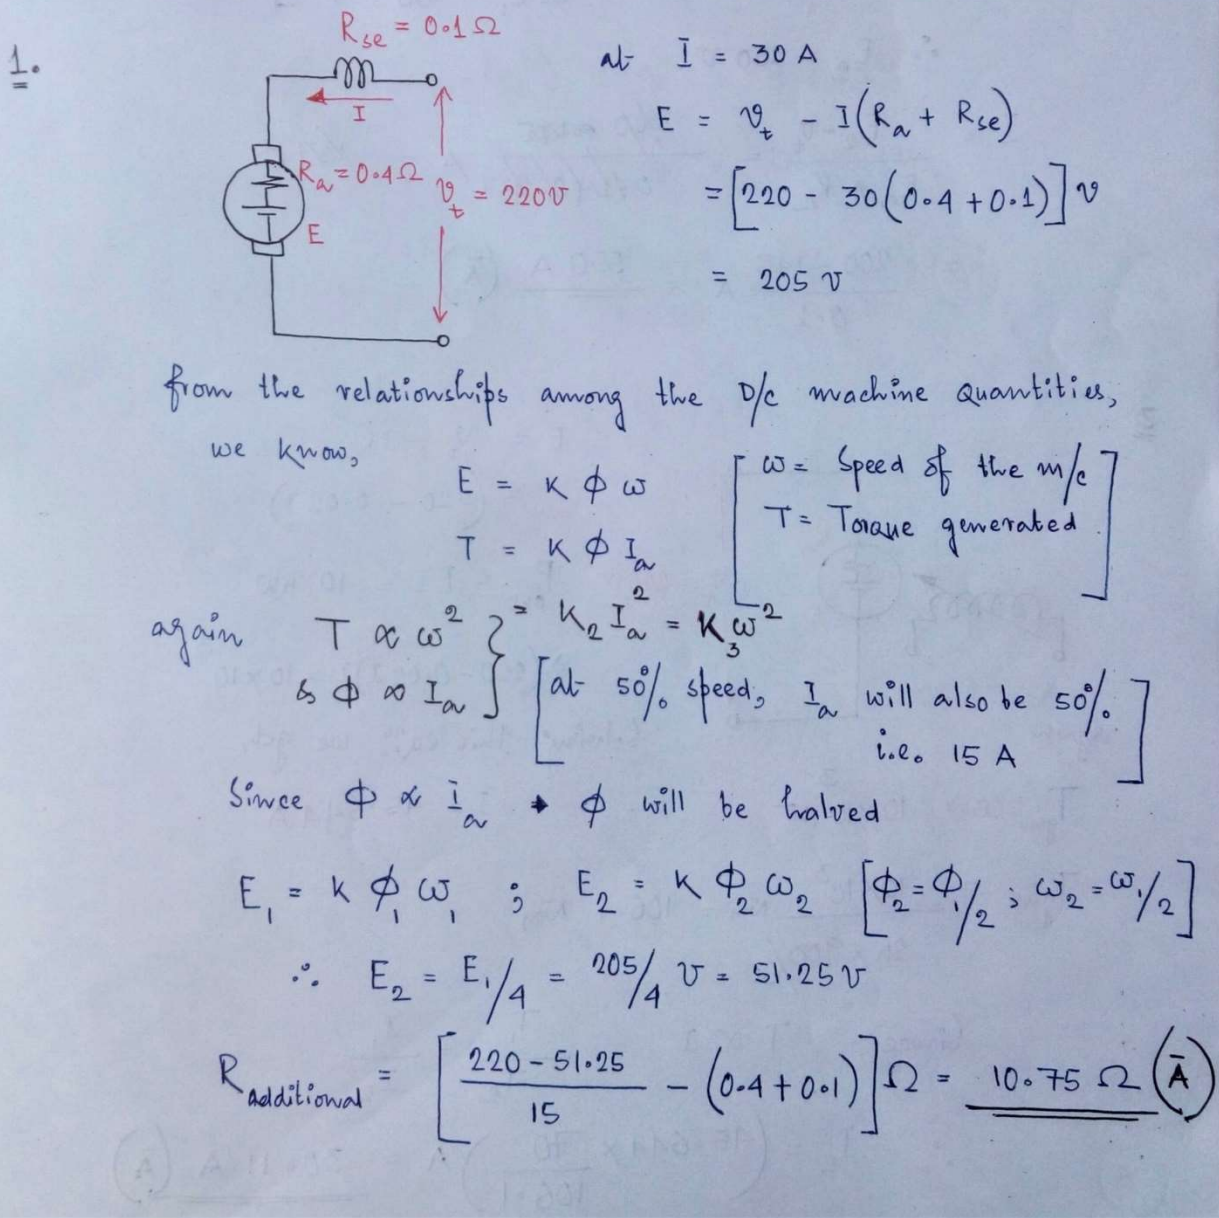 1.
R_se = 0.1 Ω
I
R_a = 0.4 Ω
E
v_t = 220 v
at I = 30 A
E = v_t - I (R_a + R_se)
= [220 - 30 (0.4 + 0.1)] v
= 205 v
from the relationships among the D/c machine Quantities,
we know,
E = K ϕ ω
T = K ϕ I_a
[ω = Speed of the m/c
T = Torque generated]
again T ∝ ω^2
& ϕ ∝ I_a } = K_2 I_a^2 = K_3 ω^2
[at 50% speed, I_a will also be 50%.
i.e. 15 A]
Since ϕ ∝ I_a → ϕ will be halved
E_1 = K ϕ_1 ω_1 ; E_2 = K ϕ_2 ω_2 [ϕ_2 = ϕ_1/2 ; ω_2 = ω_1/2]
∴ E_2 = E_1/4 = 205/4 v = 51.25 v
R_additional = [(220 - 51.25)/15 - (0.4 + 0.1)] Ω = 10.75 Ω (Ā)